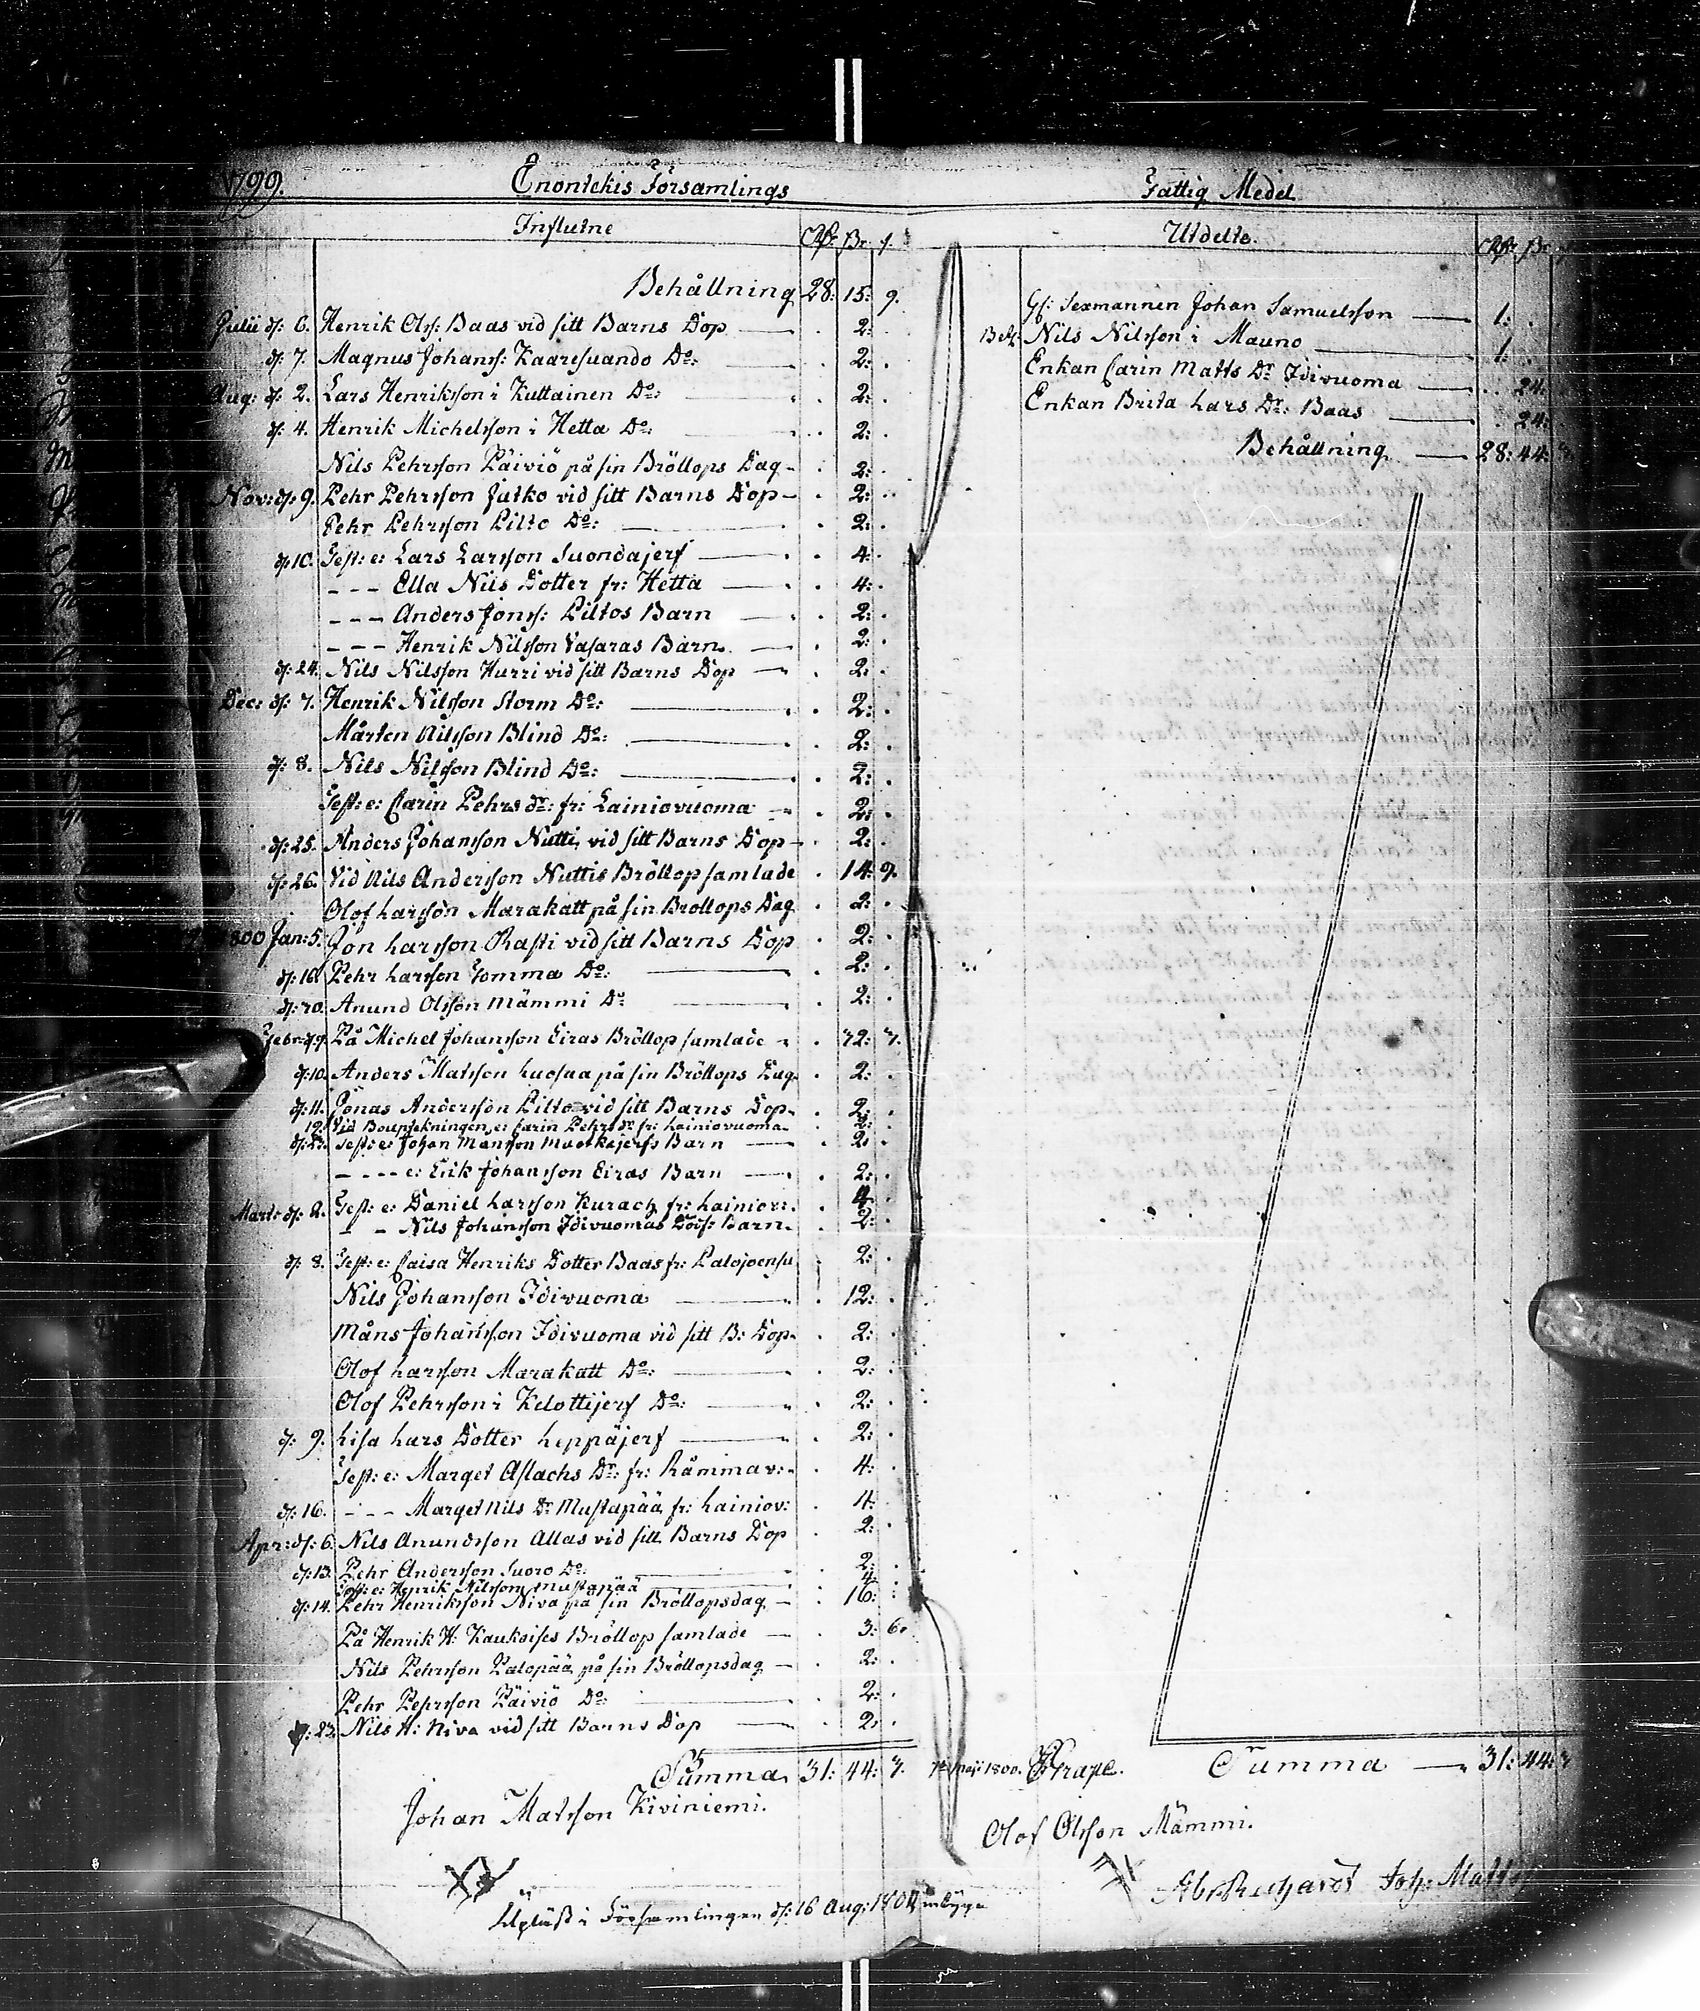 1799. Enontekis Församlings
Influtne Rdr. Sk. r.
Behållning 28: 15: 9.
Julii d: 6. Henrik Olss: Baas vid sitt Barns Dop 2:
d: 7. Magnus Johanss: Kaaresuando Do: 2:
Aug: d: 2. Lars Henriksson i Kuttainen Do: 2:
d: 4. Henrik Michelsson i Hetta Do: 2:
Nils Pehrsson Päiviö på sin Bröllops Dag 2:
Nov: d: 9. Pehr Pehrsson Jutko vid sitt Barns Dop 2:
Pehr Pehrsson Pilto Do: 2:
d: 10. Test: e: Lars Larsson Suondajerf 4:
- - - Ella Nils Dotter fr: Hetta 4:
- - - Anders Jonss: Piltos Barn 2:
- - - Henrik Nilsson Vasaras Barn 2:
d: 24. Nils Nilsson Hurri vid sitt Barns Dop 2:
Dec: d: 7. Henrik Nilsson Storm Do: 2:
Mårten Nilsson Blind Do: 2:
d: 8. Nils Nilsson Blind Do: 2:
Test: e: Carin Pehrs dr: fr: Lainiovuoma 2:
d: 25. Anders Johansson Nutti vid sitt Barns Dop 2:
d: 26. Vid Nils Andersson Nuttis Bröllop samlade 14: 9.
Olof Larsson Marakatt på sin Brollops Dag 2:
1800 Jan: 5. Jon Larsson Rasti vid sitt Barns Dop 2:
d: 16. Pehr Larsson Tomma Do: 2:
d: 20. Anund Olsson Mämmi Do 2:
Febr: d: 9. På Michel Johansson Eiras Bröllop samlade 32: 3.
d: 10. Anders Matsson Luosua på sin Bröllops Dag 2:
d: 11. Jonas Andersson Pilto vid sitt Barns Dop 2:
12. Vid Bouptekningen e: Carin Pehrs dr fr: Lainiovuoma 2:
d: 23. Test: e: Johan Månsson Muotkajerfs Barn 2:
- - - - e: Erik Johansson Eiras Barn 2:
Mart: d: 2. Test: e: Daniel Larsson Kurack fr: Lainiov: 4
- - Nils Johansson Idivuomas Döds: Barn 2:
d: 8. Test: e: Caisa Henriks Dotter Baas fr: Palojoensu 2:
Nils Johansson Idivuoma 12:
Måns Johansson Idivuoma vid sitt B: Dop 2:
Olof Larsson Marakatt Do: 2:
Olof Pehrsson i Kelottijerf Do: 2:
d: 9. Lisa Lars Dotter Leppäjerf 2:
Test: e: Marget Aslachs Dr: fr: Råmmav: 4:
d: 16. - - - Marget Nils Dr Mustapää fr: Lainiov: 4.
Apr: d: 6. Nils Anundsson Allas vid sitt Barns Dop 2:
d: 13. Pehr Andersson Suoro Do: 2:
Test: e: Henrik Nilsson Mustapää 4:
d: 14. Pehr Henriksson Niva på sin Bröllopsdag 16:
På Henrik H: Kauksises Bröllop samlade 3: 6.
Nils Pehrsson Palopää på sin Bröllopsdag 2:
Pehr Pehrsson Päiviö Do: 2:
d: 23. Nils H: Niva vid sitt Barns Dop 2.
Summa 31: 44: 3.
Johan Matsson Kiviniemi.
Upläst i Församlingen d: 16 Aug:
Fattig Medel
Utdelte. Rdr. Sk.
Gf: Sexmannen Johan Samuelsson 1:
Nils Nilsson i Mauno 1:
Enkan Carin Matts Dr Idivuoma 24:
Enkan Brita Lars Dr: Baas 24:
Behållning 28: 44: 3
Maji 1800. Grape. Summa 31: 44: 3
Olof Olsson Mämmi.
Joh: Matts